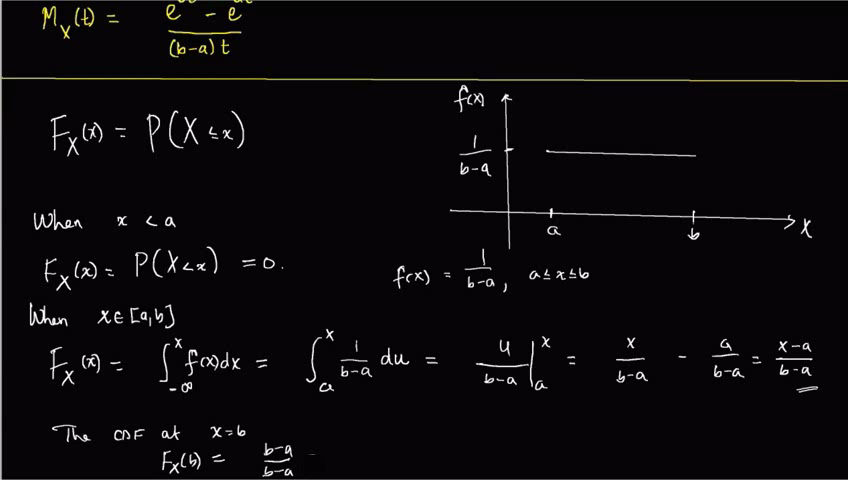 M_X(t) = (e - e) / (b-a)t
F_X(x) = P(X ≤ x)
f(x)
1/(b-a)
a b x
When x < a
F_X(x) = P(X < x) = 0.
f(x) = 1/(b-a), a ≤ x ≤ b
When x ∈ [a,b]
F_X(x) = ∫_{-∞}^{x} f(x)dx = ∫_a^x 1/(b-a) du = u/(b-a) |_a^x = x/(b-a) - a/(b-a) = (x-a)/(b-a)
The CDF at x=b
F_X(b) = (b-a)/(b-a)